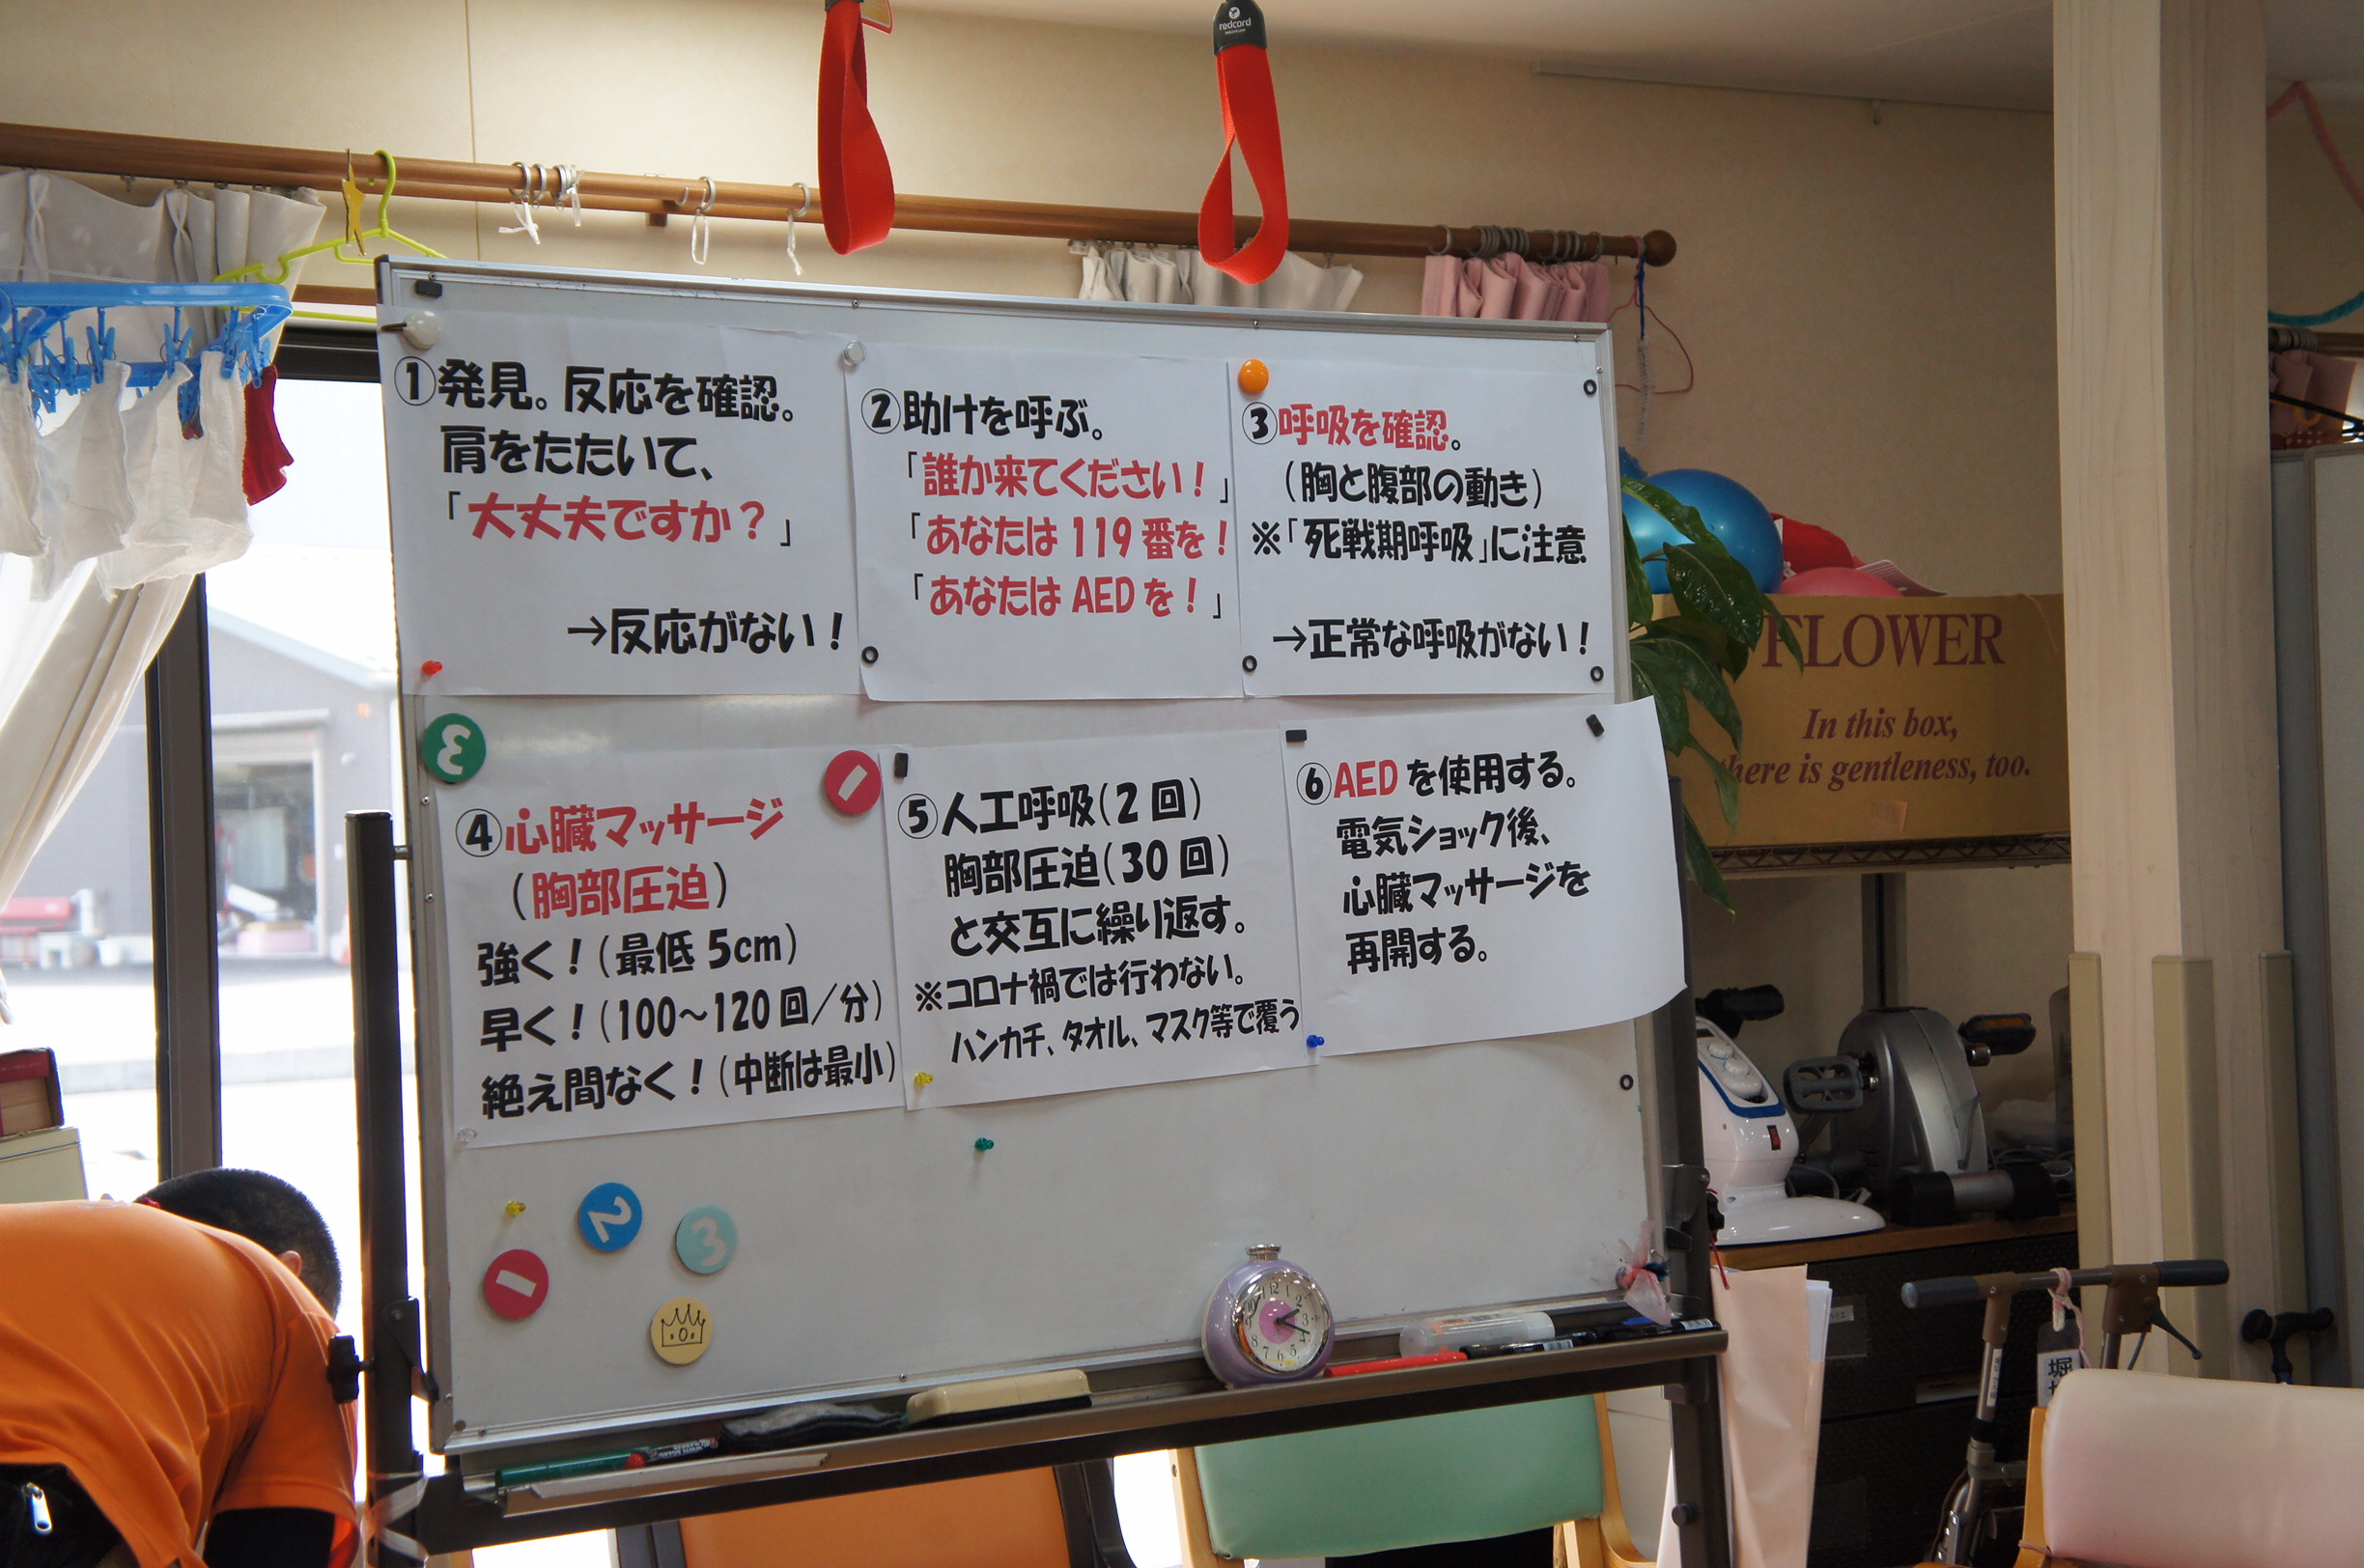 redcord
①発見。反応を確認。
肩をたたいて、
「大丈夫ですか？」
→反応がない！
②助けを呼ぶ。
「誰か来てください！」
「あなたは119番を！
「あなたはAEDを！」
③呼吸を確認。
（胸と腹部の動き）
※「死戦期呼吸」に注意
→正常な呼吸がない！
④心臓マッサージ
（胸部圧迫）
強く！（最低5cm）
早く！（100～120回／分）
絶え間なく！（中断は最小）
⑤人工呼吸（2回）
胸部圧迫（30回）
と交互に繰り返す。
※コロナ禍では行わない。
ハンカチ、タオル、マスク等で覆う
⑥AEDを使用する。
電気ショック後、
心臓マッサージを
再開する。
FLOWER
In this box,
there is gentleness, too.
3
1
2
3
1
堀